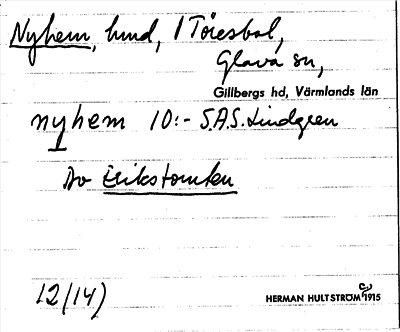 Nyhem, hmd, / Töresbol,
Glava sn,
Gillbergs hd, Värmlands län
nyhem 10:- S.A.S. Lindgren
Av Erikstomten
12/14)
HERMAN HULTSTRÖM 1915